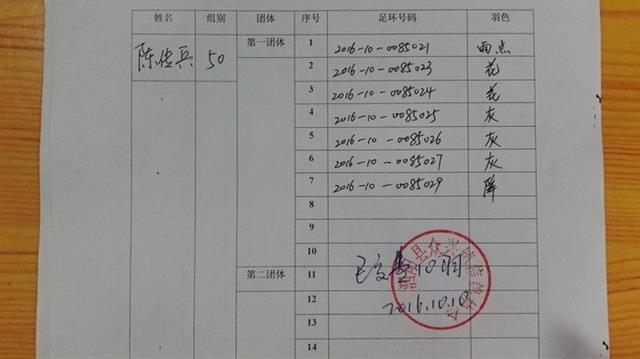 姓名 组别 团体 序号 足环号码 羽色
陈佐兵 50 第一团体 1 2016-10-0085021 雨点
2 2016-10-0085023 花
3 2016-10-0085024 花
4 2016-10-0085025 灰
5 2016-10-0085026 灰
6 2016-10-0085027 灰
7 2016-10-0085029 降
8
9
10
10羽
第二团体 11
2016.10.10
12
13
14